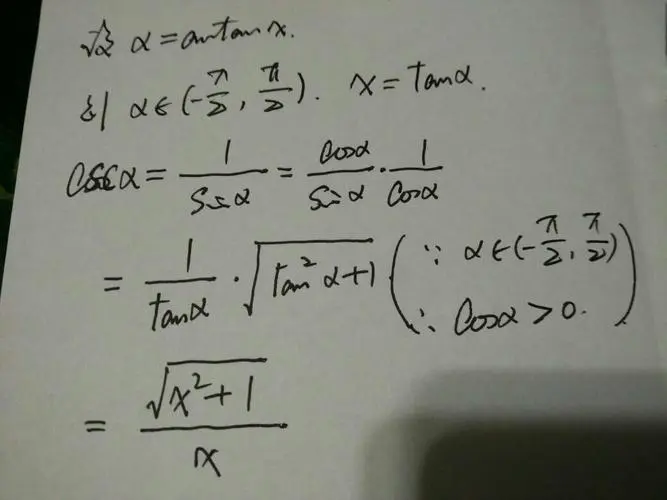 设 α = arctan x.
则 α∈(-π/2, π/2). x = tanα.
cscα = 1/sinα = cosα/sinα · 1/cosα
= 1/tanα · √(tan²α+1) (∵ α∈(-π/2, π/2) ∴ cosα > 0.)
= √(x²+1)/x